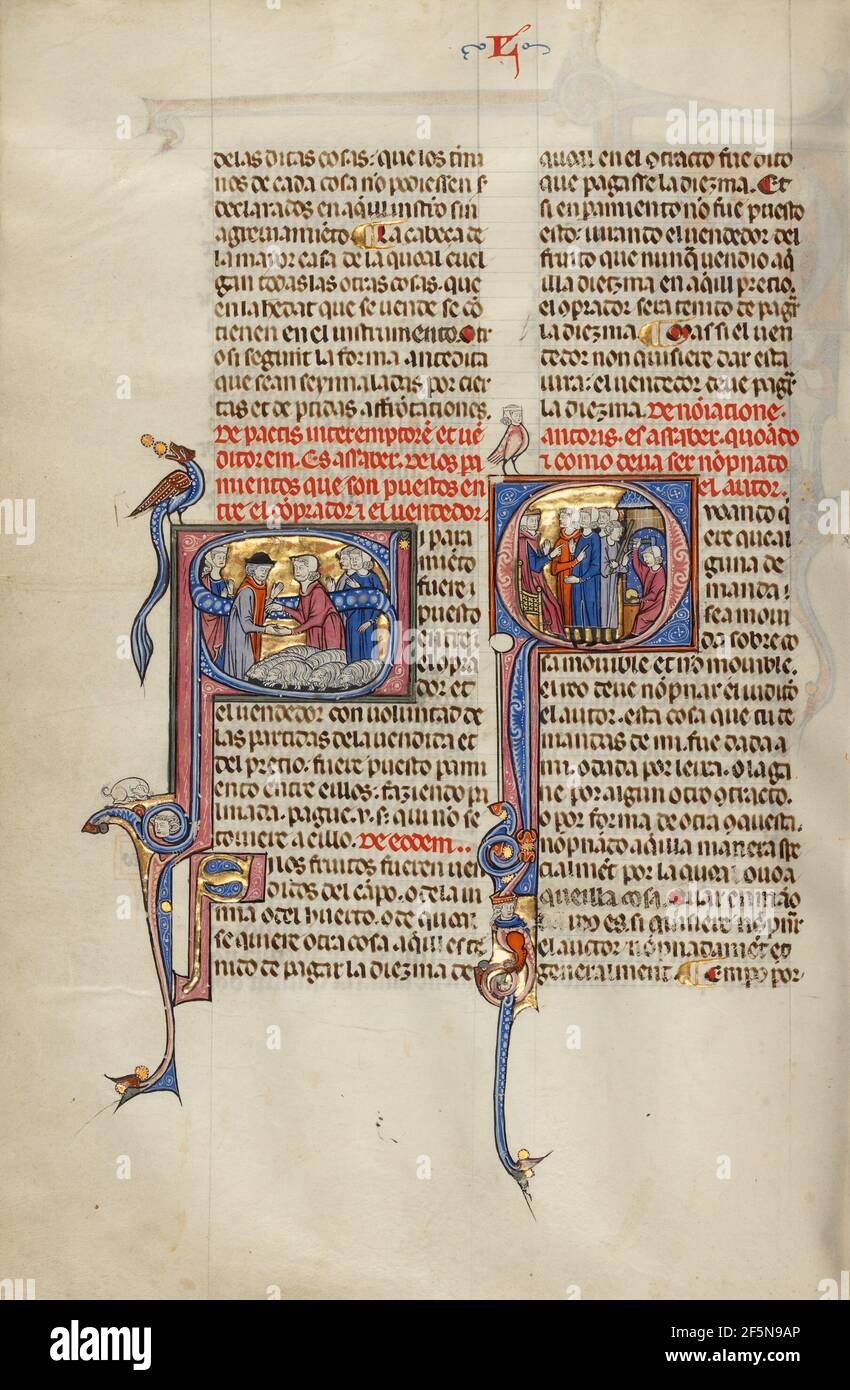 delas ditas cosas. que los tirmi
nos de cada cosa nō podiessen s̄
declarados en aq̄ll instrō sin
agreuiamiēto. La cabeça de
la mayor casa de la qual cuel
gan todas las otras cosas. que
en la hedat que se uende se cō
tienen en el instrumento. Otr
osi seguut la forma antedita
que sean seynnaladas por cier
tas et de ptidas affrōtaciones.
De pactis inter emptorē et uē
ditorem. Es assaber. de los pa
mientos que son puestos en
tre el cōprador ⁊ el uendedor.
Si para
miēto
fuere
puesto
entre
el cōpra
dor et
el uendedor con uoluntad de
las partidas de la uendida et
del precio. fuere puesto pami
ento entre eillos. faziendo
pague. v. s̄. qui nō se
touiere a eillo. De eodem..
Si los fruitos fueren uen
didos del cāpo. o de la ui
nna o del huerto. o de qual
se quiere otra cosa aq̄ll es te
nido de pagar la diezma de
qual en el ɔtracto fue dito
que pagasse la diezma. Et
si en pamiento nō fue puesto
esto. iurando el uendedor del
fruito que nunq̄ uendio aq̄
illa diezma en aq̄ll precio.
el cōprador sera tenido de pagr̄
la diezma. Mas si el uen
dedor non quisiere dar esta
iura. el uendedor deue pagr̄
la diezma. De nōiatione
auctoris. es assaber. quādo
⁊ como deua ser nōpnado
el autor.
Quando q̄
ere qual
guna de
manda
sea moui
da sobre co
sa mouible et nō mouible.
el reo deue nōpnar el iudicō
el autor. esta cosa que tu de
mandas de mi. fue dada a
mi. o dada por leixa. o la ga
ne por algun otro ɔtracto.
o por forma de otra ɔquesta.
nōpnādo aq̄lla manera ste
cialmēt por la qual ouo a
queilla cosa.
es. si quisiere nōpnr̄
el auctor nōpnadamēt et
generalment. Tempo por
alamy
Image ID: 2F5N9AP
www.alamy.com